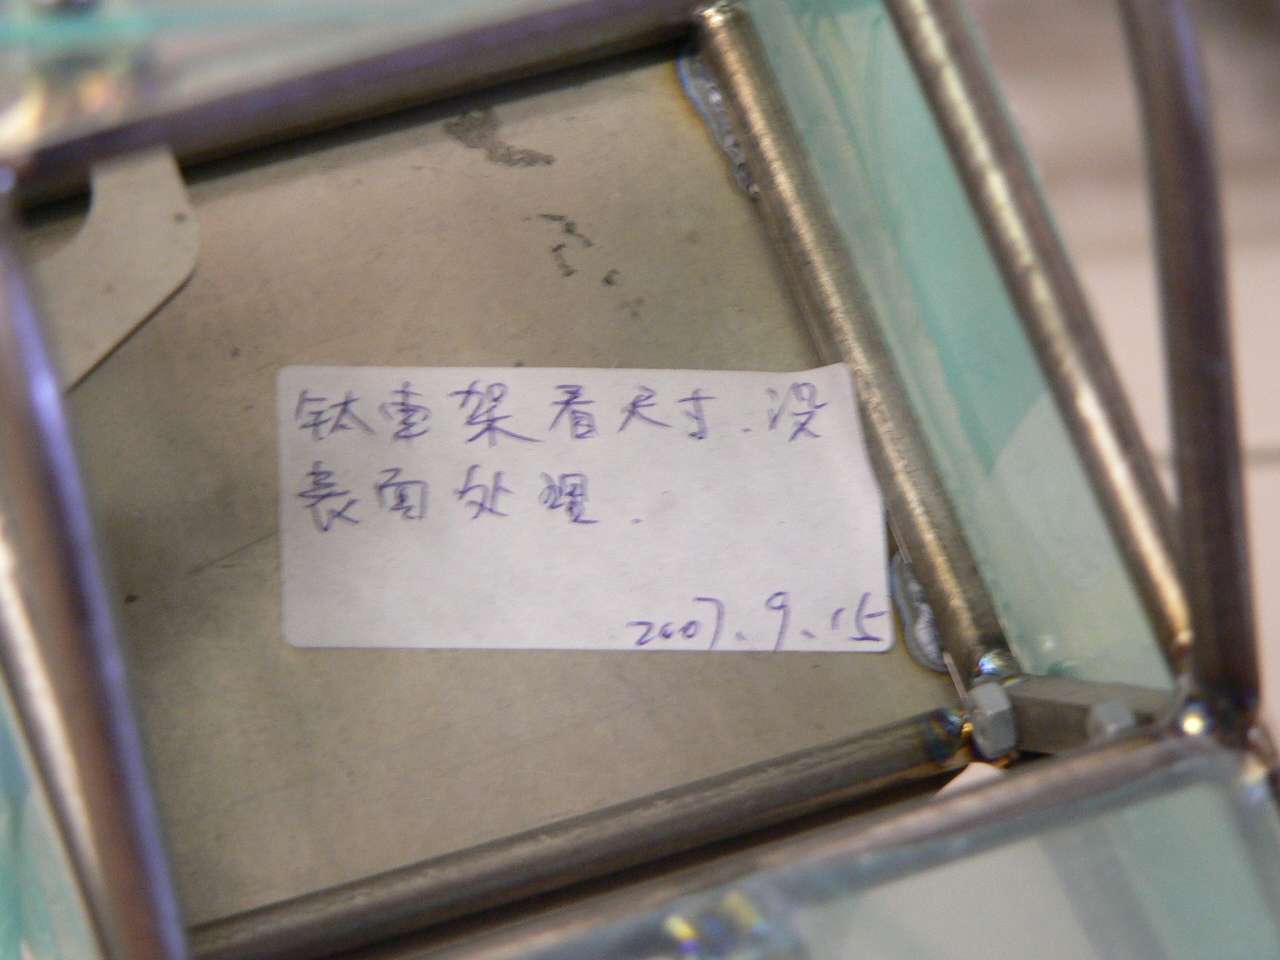 钛壶架看尺寸.没
表面处理.
2007.9.15